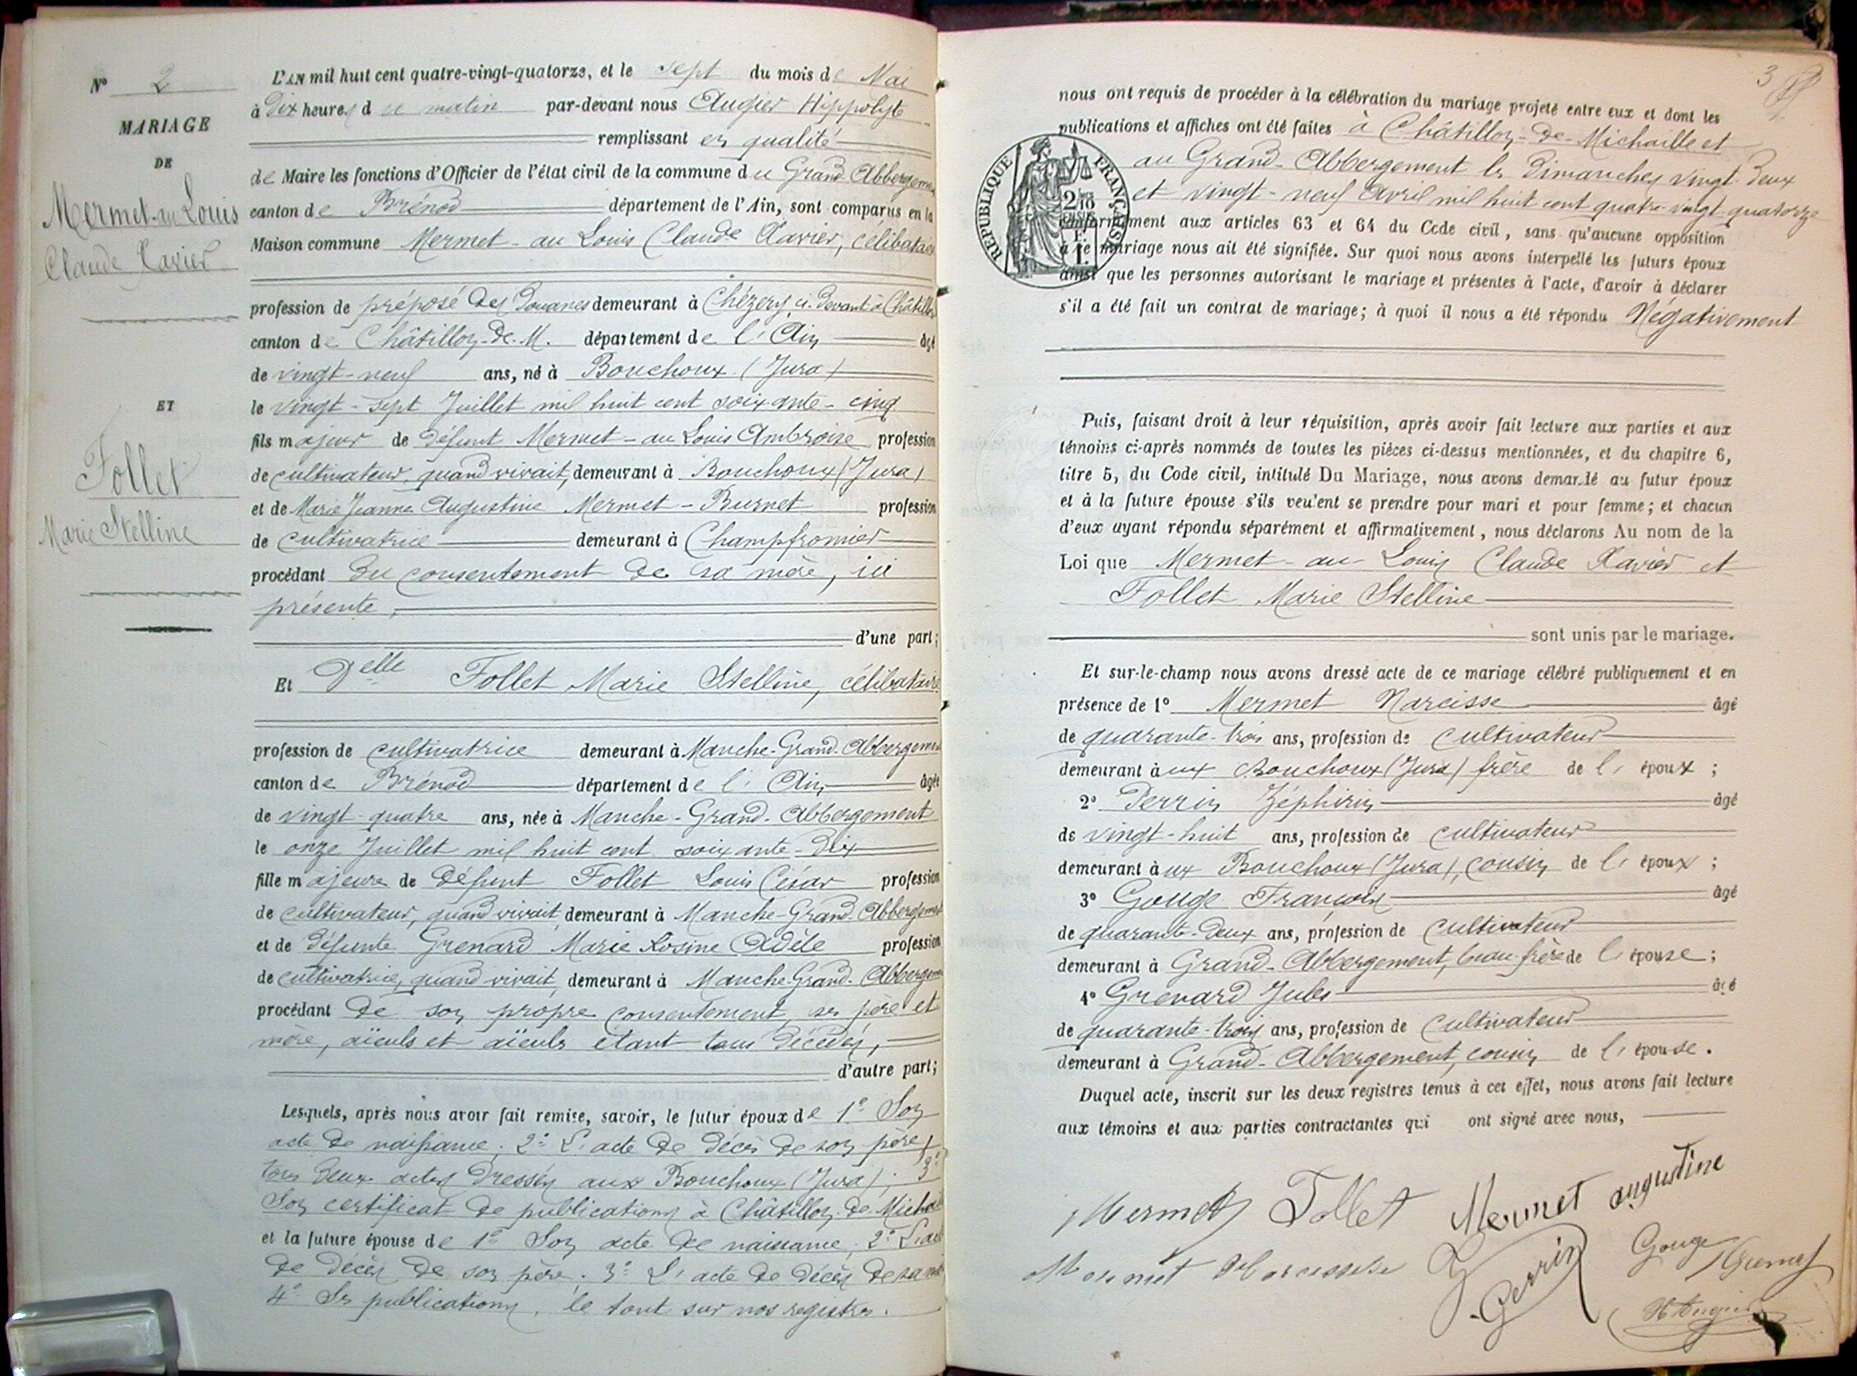 N° 2
MARIAGE
DE
Mermet-au Louis
Claude Xavier
ET
Follet
Marie Stelline
L'AN mil huit cent quatre-vingt-quatorze, et le sept du mois de Mai
à Dix heures du matin par-devant nous Augier Hippolyte
remplissant en qualité
de Maire les fonctions d'Officier de l'état civil de la commune du Grand Abbergement
canton de Brénod département de l'Ain, sont comparus en la
Maison commune Mermet-au Louis Claude Xavier, célibataire
profession de préposé des Douanes demeurant à Chézery, ci-devant à Châtillon
canton de Châtillon-de-M. département de l'Ain âgé
de vingt-neuf ans, né à Bouchoux (Jura)
le vingt-sept Juillet mil huit cent soixante-cinq
fils majeur de défunt Mermet-au Louis Ambroise profession
de cultivateur, quand vivait, demeurant à Bouchoux (Jura)
et de Marie Jeanne Augustine Mermet-Burnet profession
de cultivatrice demeurant à Champfromier
procédant du consentement de sa mère, ici
présente,
d'une part;
Et Delle Follet Marie Stelline, célibataire
profession de cultivatrice demeurant à Manche-Grand-Abbergement
canton de Brénod département de l'Ain âgée
de vingt-quatre ans, née à Manche-Grand-Abbergement
le onze Juillet mil huit cent soixante-dix
fille majeure de défunt Follet Louis César profession
de cultivateur, quand vivait, demeurant à Manche-Grand-Abbergement
et de défunte Grenard Marie Rosine Adèle profession
de cultivatrice, quand vivait, demeurant à Manche-Grand-Abbergement
procédant de son propre consentement, ses père et
mère, aïeuls et aïeules étant tous décédés,
d'autre part;
Lesquels, après nous avoir fait remise, savoir, le futur époux de 1° Son
acte de naissance; 2° L'acte de décès de son père,
tous deux actes dressés aux Bouchoux (Jura); 3°
Son certificat de publications à Châtillon-de-Michaille
et la future épouse de 1° Son acte de naissance; 2° L'acte
de décès de son père; 3° L'acte de décès de sa mère
4° Les publications, le tout sur nos registres.
3
nous ont requis de procéder à la célébration du mariage projeté entre eux et dont les
publications et affiches ont été faites à Châtillon-de-Michaille et
au Grand-Abbergement les Dimanches vingt-deux
et vingt-neuf Avril mil huit cent quatre-vingt-quatorze
conformément aux articles 63 et 64 du Code civil, sans qu'aucune opposition
à ce mariage nous ait été signifiée. Sur quoi nous avons interpellé les futurs époux
ainsi que les personnes autorisant le mariage et présentes à l'acte, d'avoir à déclarer
s'il a été fait un contrat de mariage; à quoi il nous a été répondu Négativement
RÉPUBLIQUE FRANÇAISE
Puis, faisant droit à leur réquisition, après avoir fait lecture aux parties et aux
témoins ci-après nommés de toutes les pièces ci-dessus mentionnées, et du chapitre 6,
titre 5, du Code civil, intitulé Du Mariage, nous avons demandé au futur époux
et à la future épouse s'ils veulent se prendre pour mari et pour femme; et chacun
d'eux ayant répondu séparément et affirmativement, nous déclarons Au nom de la
Loi que Mermet-au-Louis Claude Xavier et
Follet Marie Stelline
sont unis par le mariage.
Et sur-le-champ nous avons dressé acte de ce mariage célébré publiquement et en
présence de 1° Mermet Narcisse âgé
de quarante-trois ans, profession de cultivateur
demeurant aux Bouchoux (Jura) frère de l'époux;
2° Perrin Zéphirin âgé
de vingt-huit ans, profession de cultivateur
demeurant aux Bouchoux (Jura), cousin de l'époux;
3° Gouge François âgé
de quarante-deux ans, profession de cultivateur
demeurant à Grand-Abbergement, beau-frère de l'épouse;
4° Grenard Jules âgé
de quarante-trois ans, profession de cultivateur
demeurant à Grand-Abbergement, cousin de l'épouse.
Duquel acte, inscrit sur les deux registres tenus à cet effet, nous avons fait lecture
aux témoins et aux parties contractantes qui ont signé avec nous,
Mermet Follet Mermet augustine
Mermet Narcisse Z Perrin Gouge
H Augier